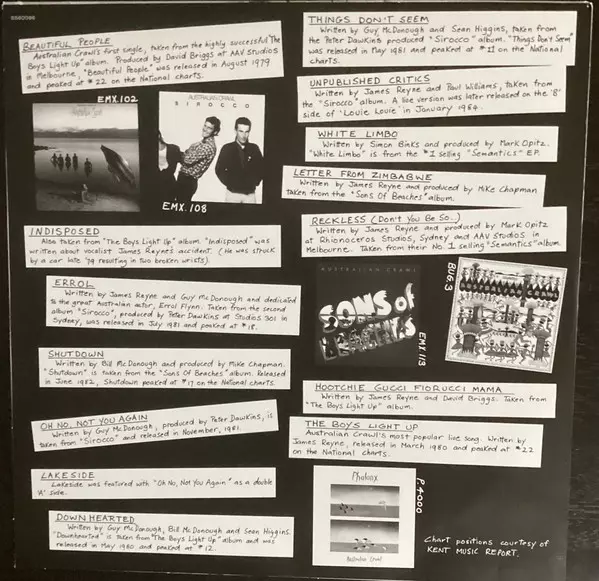 BEAUTIFUL PEOPLE
Australian Crawl's first single, taken from the highly successful "The
Boys Light Up" album. Produced by David Briggs at AAV Studios
in Melbourne, "Beautiful People" was released in August 1979
and peaked at #22 on the National charts.
EMX.102
AUSTRALIAN CRAWL
SIROCCO
EMX.108
INDISPOSED
Also taken from "The Boys Light Up" album. "Indisposed" was
written about vocalist James Reyne's accident. (He was struck
by a car late '79 resulting in two broken wrists).
ERROL
Written by James Reyne and Guy McDonough and dedicated
to the great Australian actor, Errol Flynn. Taken from the second
album "Sirocco", produced by Peter Dawkins at Studios 301 in
Sydney, was released in July 1981 and peaked at #18.
SHUTDOWN
Written by Bill McDonough and produced by Mike Chapman.
"Shutdown" is taken from the "Sons Of Beaches" album. Released
in June 1982, Shutdown peaked at #17 on the National charts.
OH NO, NOT YOU AGAIN
Written by Guy McDonough, produced by Peter Dawkins, is
taken from "Sirocco" and released in November, 1981.
LAKESIDE
Lakeside was featured with "Oh No, Not You Again" as a double
'A' side.
DOWNHEARTED
Written by Guy McDonough, Bill McDonough and Sean Higgins.
"Downhearted" is taken from "The Boys Light Up" album and was
released in May 1980 and peaked at #12.
THINGS DON'T SEEM
Written by Guy McDonough and Sean Higgins, taken from
the Peter Dawkins produced "Sirocco" album. "Things Don't Seem"
was released in May 1981 and peaked at #11 on the National
charts.
UNPUBLISHED CRITICS
Written by James Reyne and Paul Williams, taken from
the "Sirocco" album. A live version was later released on the 'B'
side of 'Louie Louie' in January 1984.
WHITE LIMBO
Written by Simon Binks and produced by Mark Opitz.
"White Limbo" is from the #1 selling "Semantics" EP.
LETTER FROM ZIMBABWE
Written by James Reyne and produced by Mike Chapman
taken from the "Sons Of Beaches" album.
RECKLESS (Don't You Be So..)
Written by James Reyne and produced by Mark Opitz
at Rhinoceros Studios, Sydney and AAV Studios in
Melbourne. Taken from their No. 1 selling "Semantics" album.
AUSTRALIAN CRAWL
SONS of
BEACHES
EMX 113
BUG.3
HOOTCHIE GUCCI FIORUCCI MAMA
Written by James Reyne and David Briggs. Taken from
"The Boys Light Up" album.
THE BOYS LIGHT UP
Australian Crawl's most popular live song. Written by
James Reyne, released in March 1980 and peaked at #22
on the National charts.
Phalanx
Australian Crawl
P.4000
Chart positions courtesy of
KENT MUSIC REPORT.